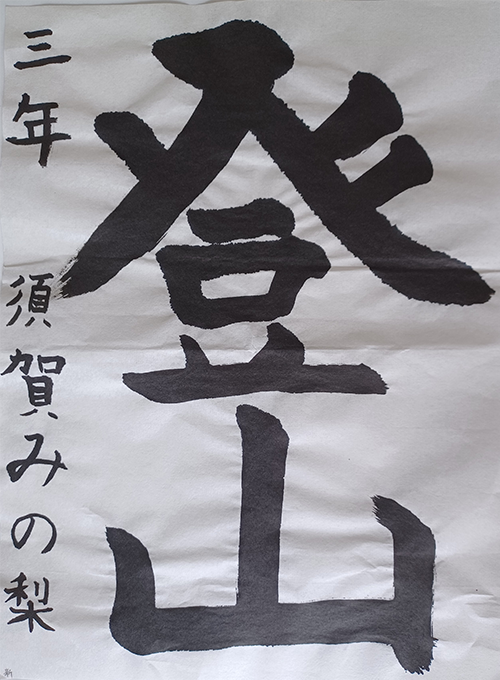 登山
三年 須賀みの梨